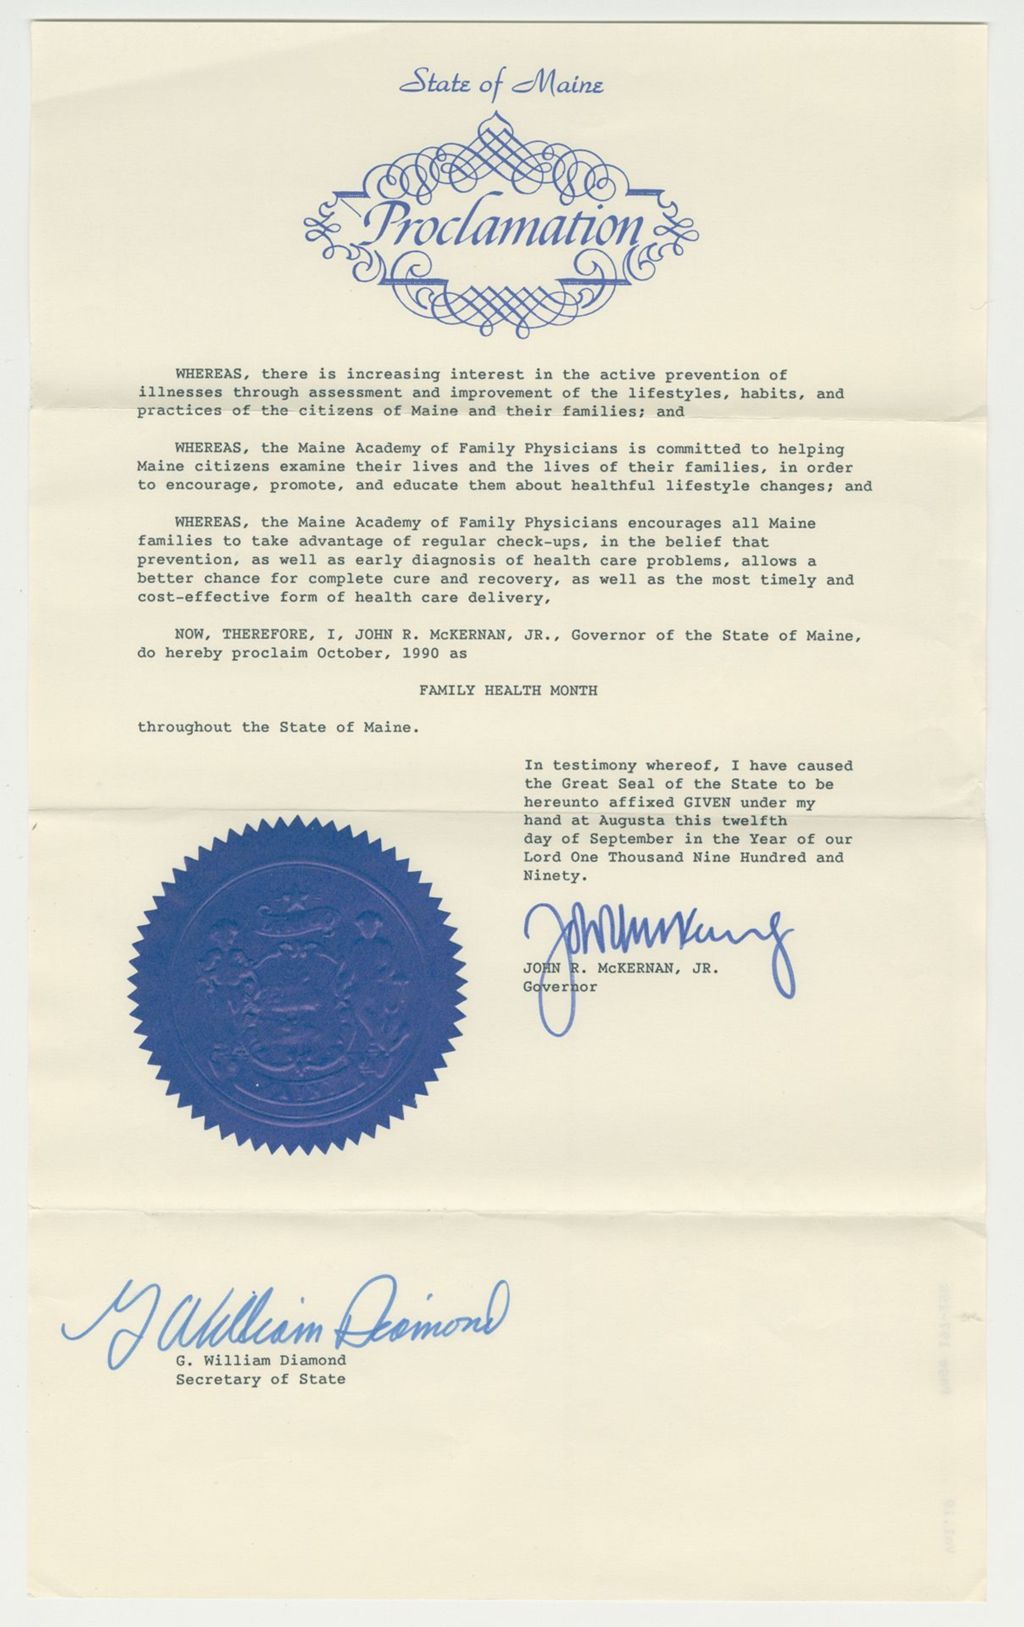 State of Maine
Proclamation
WHEREAS, there is increasing interest in the active prevention of
illnesses through assessment and improvement of the lifestyles, habits, and
practices of the citizens of Maine and their families; and
WHEREAS, the Maine Academy of Family Physicians is committed to helping
Maine citizens examine their lives and the lives of their families, in order
to encourage, promote, and educate them about healthful lifestyle changes; and
WHEREAS, the Maine Academy of Family Physicians encourages all Maine
families to take advantage of regular check-ups, in the belief that
prevention, as well as early diagnosis of health care problems, allows a
better chance for complete cure and recovery, as well as the most timely and
cost-effective form of health care delivery,
NOW, THEREFORE, I, JOHN R. McKERNAN, JR., Governor of the State of Maine,
do hereby proclaim October, 1990 as
FAMILY HEALTH MONTH
throughout the State of Maine.
In testimony whereof, I have caused
the Great Seal of the State to be
hereunto affixed GIVEN under my
hand at Augusta this twelfth
day of September in the Year of our
Lord One Thousand Nine Hundred and
Ninety.
JOHN R. McKERNAN, JR.
Governor
G William Diamond
G. William Diamond
Secretary of State